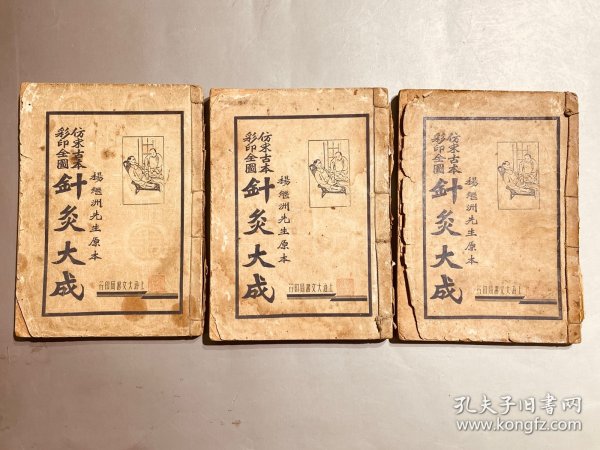 仿宋古本
彩印全圖
針灸大成
楊繼洲先生原本
上海大文書局印行
仿宋古本
彩印全圖
針灸大成
楊繼洲先生原本
上海大文書局印行
仿宋古本
彩印全圖
針灸大成
楊繼洲先生原本
上海大文書局印行
孔夫子旧书网
www.kongfz.com